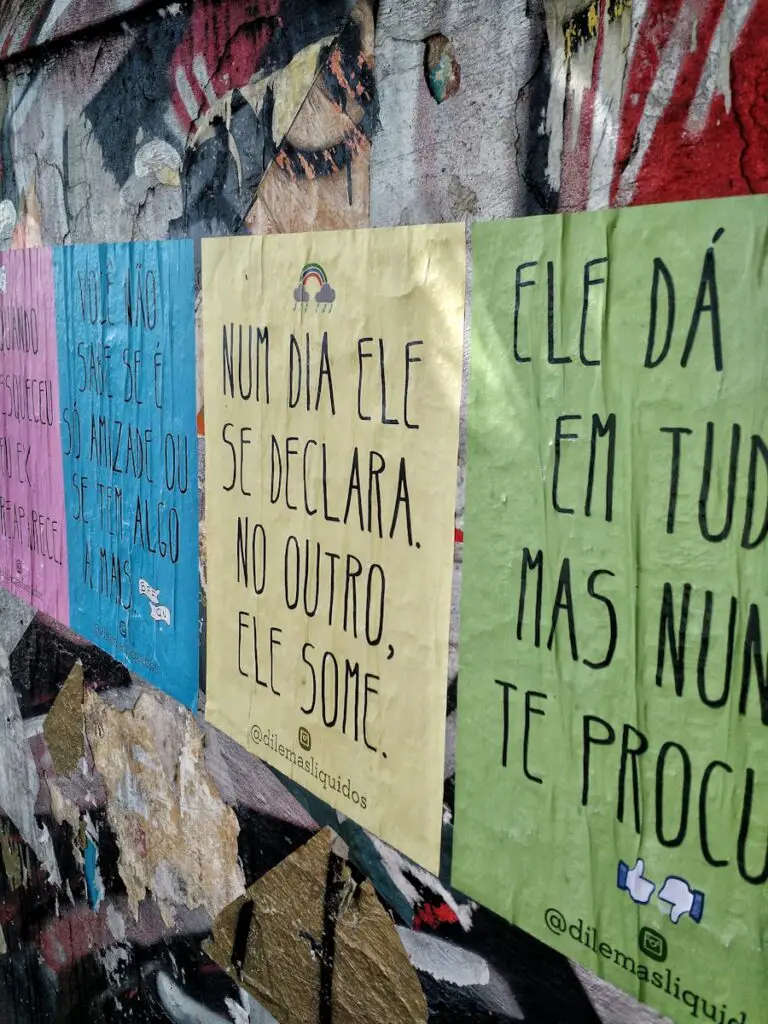 QUANDO
ESQUECEU
EX
REAPARECE.
VOCÊ NÃO
SABE SE É
SÓ AMIZADE OU
SE TEM ALGO
A MAIS.
NUM DIA ELE
SE DECLARA.
NO OUTRO,
ELE SOME.
@dilemasliquidos
ELE DÁ
EM TUD
MAS NUN
TE PROCU
@dilemasliquido